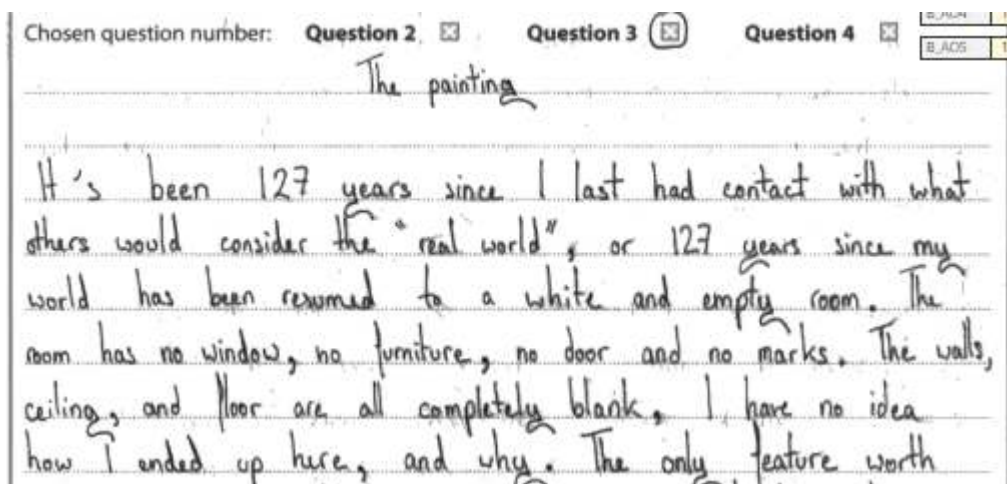 Chosen question number: Question 2 ☒ Question 3 ☒ Question 4 ☒
B_AO5 1
The painting
It's been 127 years since I last had contact with what
others would consider the "real world", or 127 years since my
world has been resumed to a white and empty room. The
room has no window, no furniture, no door and no marks. The walls,
ceiling, and floor are all completely blank, I have no idea
how I ended up here, and why. The only feature worth